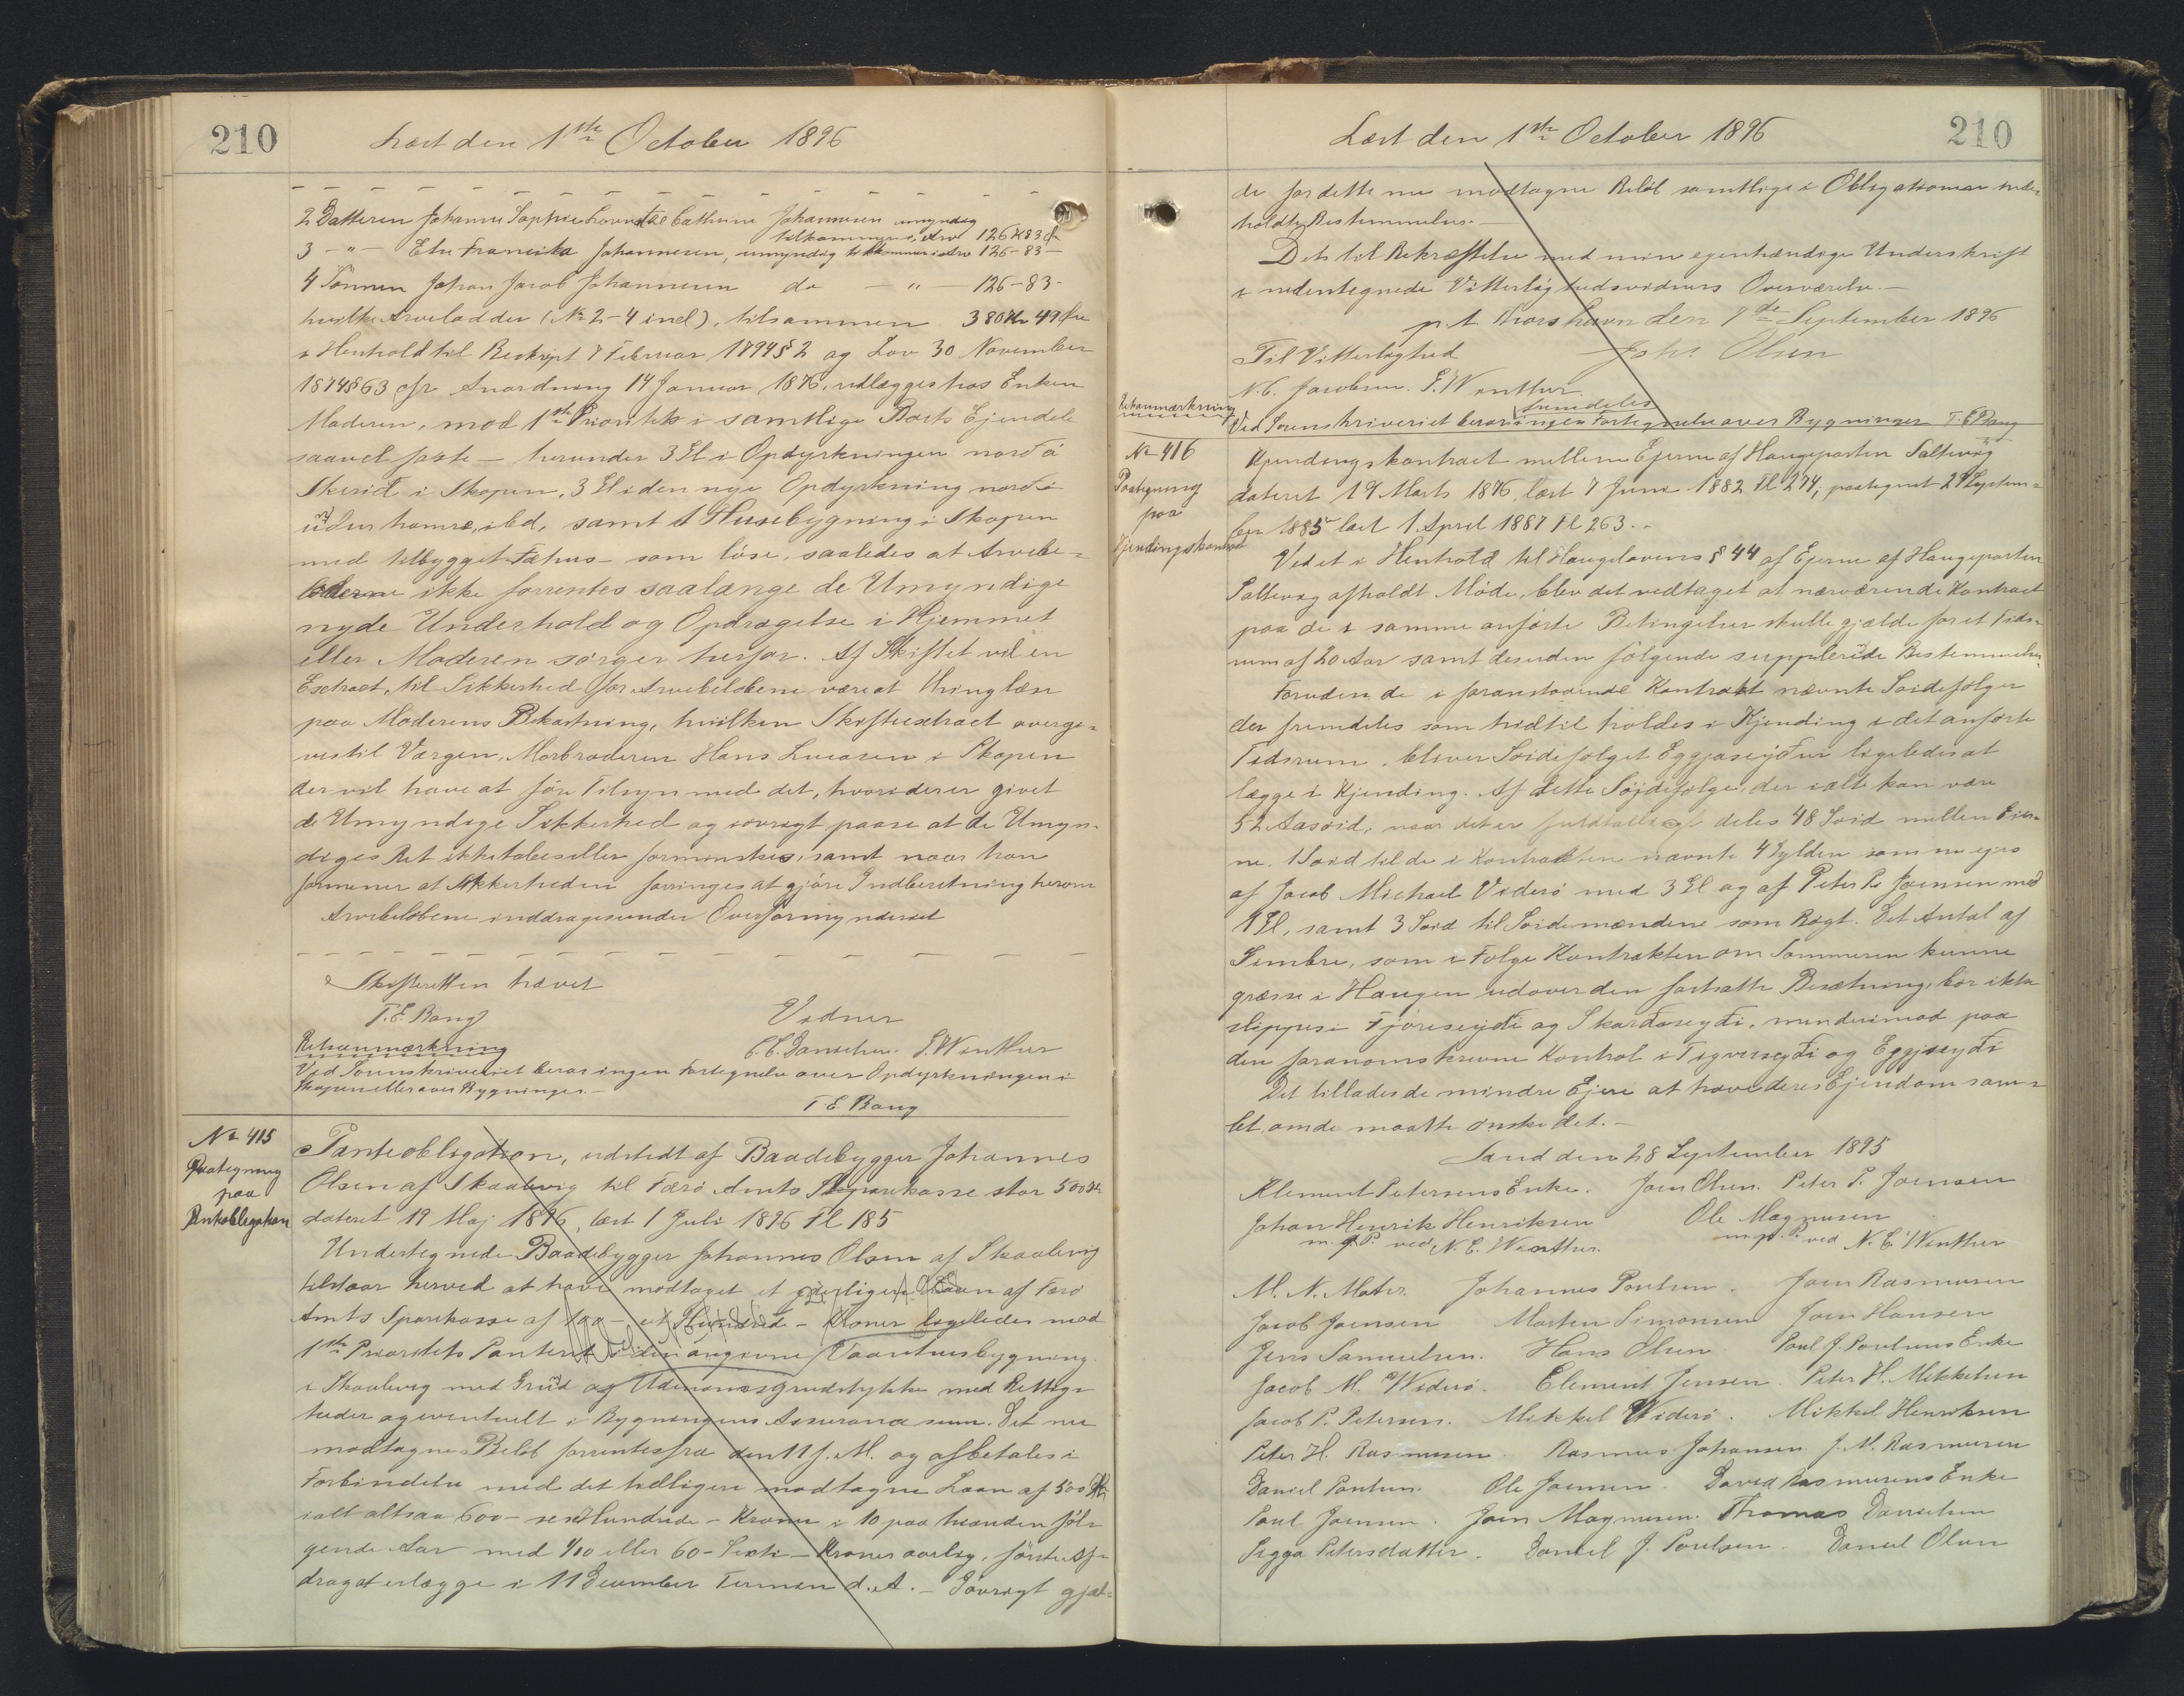 210
Læst den 1ste October 1896
2 Datteren Johanne Sophie Lovise Cathrine Johannesen umyndig
tilkommer i Arv 126 Kr 83 Ø
3 - " - Else Franciska Johannesen, umyndig tilkommer i Arv 126 - 83 -
4 Sönnen Johan Jacob Johannesen do - " - 126 - 83 -
hvilke Arvelodder (No 2-4 incl), tilsammen 380 Kr 49 Øre
i Henhold til Reskript 7 Februar 1794 § 2 og Lov 30 November
1874 § 63 cfr Anordning 14 Januar 1876, udlægges hos Enken
Moderen, mod 1ste Prioritets i samtlige Boets Ejendele
saavel faste - herunder 3 Gl i Opdyrkningen nord á
Skerid i Skopen, 3 Gl i den nye Opdyrkning nord i
undur hamre, ibd, samt 1 Husebygning i Skopen
med tilbygget Fæhus - som löse, saaledes at Arvebe-
löbene ikke forrentes saalænge de Umyndige
nyde Underhold og Opdragelse i Hjemmet
eller Moderen sörger herfor. Af Skiftet vil en
Extract, til Sikkerhed for Arvebelöbene være at thinglæse
paa Moderens Bekostning, hvilken Skifteextract overgi-
ves til Værgen, Morbroderen Hans Lucasen i Skopen
der vil have at före Tilsyn med det, hvori der er givet
de Umyndige Sikkerhed og iövrigt paase at de Umyn-
diges Ret ikke tabes eller forminskes, samt naar han
formener at Sikkerheden forringes at gjöre Indberetning herom
Arvebelöbene inddrages under Overformynderiet
Skifteretten hævet
T. E. Bang Vidner
C. C. Danielsen. S. Winther
Retsanmærkning
Ved Sorenskriveriet beror ingen Fortegnelse over Opdyrkningen i
Skopen eller over Bygninger. -
T. E. Bang
No 415
Paategning
paa
Panteobligation
Panteobligation, udstedt af Baadebygger Johannes
Olsen af Skaalevig til Færö Amts Sparekasse stor 500 Kr
dateret 19 Maj 1896, læst 1 Juli 1896 Fl 185
Undertegnede Baadebygger Johannes Olsen af Skaalevig
tilstaar herved at have modtaget et yderligere Laan af Færö
Amts Sparekasse af 100 - et Hundrede - Kroner ligeledes mod
1ste Prioritets Panteret i den angivne Vaaningshusbygning
i Skaalevig med Grund og Udenomsgrundstykke med Rettig-
heder og eventuelt i Bygningens Assurancesum. Det nu
modtagne Belöb forrentes fra den 11 f. M. og afbetales i
Forbindelse med det tidligere modtagne Laan af 500 Kr
ialt altsaa 600 - sex Hundrede - Kroner i 10 paa hinanden föl-
gende Aar med 1/10 eller 60 - Sexti - Kroner aarlig, förste Af-
drag at erlægge i 11 December Termin d. A. - Iövrigt gjæl-
210
Læst den 1ste October 1896
de for dette nu modtagne Belöb samtlige i Obligationen inde-
holdte Bestemmelser. -
Dets til Bekræftelse med min egenhændige Underskrift
i nedentegnede Vitterlighedsvidners Overværelse. -
p. t. Thorshavn den 7de September 1896
Til Vitterlighed Johs Olsen
N. C. Jacobsen. S. Winther
Retsanmærkning
fremdeles
Ved Sorenskriveriet beror ingen Fortegnelse over Bygninger T. E. Bang
No 416
Paategning
paa
Kjendingskontract
Kjendingskontract mellem Ejerne af Haugeparten Saltevig
dateret 19 Marts 1876, læst 7 Juni 1882 Fl 274, paategnet 29 Septem-
ber 1885 læst 1 April 1887 Fl 263. -
Ved et i Henhold til Haugelovens § 44 af Ejerne af Haugeparten
Saltevig afholdt Möde, blev det vedtaget at nærværende Kontract
paa de i samme anförte Betingelser skulle gjælde for et Tids-
rum af 20 Aar samt desuden fölgende supplerende Bestemmelser
Foruden de i foranstaaende Kontrakt nævnte Soidefölger
der fremdeles som hidtil holdes i Kjending i det anförte
Tidsrum, bliver Soidefölget Eggjaseydur ligeledes at
lægge i Kjending. Af dette Söjdefölge, der ialt kan være
52 Aasoid, naar det er fuldtalligt deles 48 Soid mellem Ejer-
ne. 1 Soid til de i Kontrakten nævnte 4 Gylden som nu ejes
af Jacob Michael Viderö med 3 Gl og af Peter P. Joensen med
1 Gl, samt 3 Soid til Soidemændene som Rögt. Det Antal af
Gimbre, som i Fölge Kontrakten om Sommeren kunne
græsse i Haugen udover den fastsatte Besætning, bör ikke
slippes i Fjöreseydi og Skardaseydi, men derimod paa
den foranomskrevne Kontrol i Tigverseydi og Eggjaseydi
Det tillades de mindre Ejere at have deres Ejendom sam-
let, om de maatte önske det. -
Sand den 28 September 1895
Klement Petersens Enke. Joen Olsen. Peter P. Joensen
Johan Henrik Henriksen Ole Magnusen
m. f. P. ved N. C. Winther. m. f. P. ved N. C. Winther
M. N. Mohr. Johannes Poulsen. Joen Rasmusen
Jacob Joensen Morten Simonsen Joen Hansen
Jens Samuelsen. Hans Olsen Poul J. Poulsens Enke
Jacob M. Widerö. Clement Jensen. Peter H. Mikkelsen
Jacob P. Petersen. Mikkel Widerö. Mikkel Henriksen
Peter H. Rasmusen. Rasmus Johansen. J. M. Rasmusen
Daniel Poulsen. Ole Joensen. David Rasmusens Enke
Poul Joensen. Joen Magnusen. Thomas Danielsen
Sigga Petersdatter. Daniel J. Poulsen. Daniel Olsen